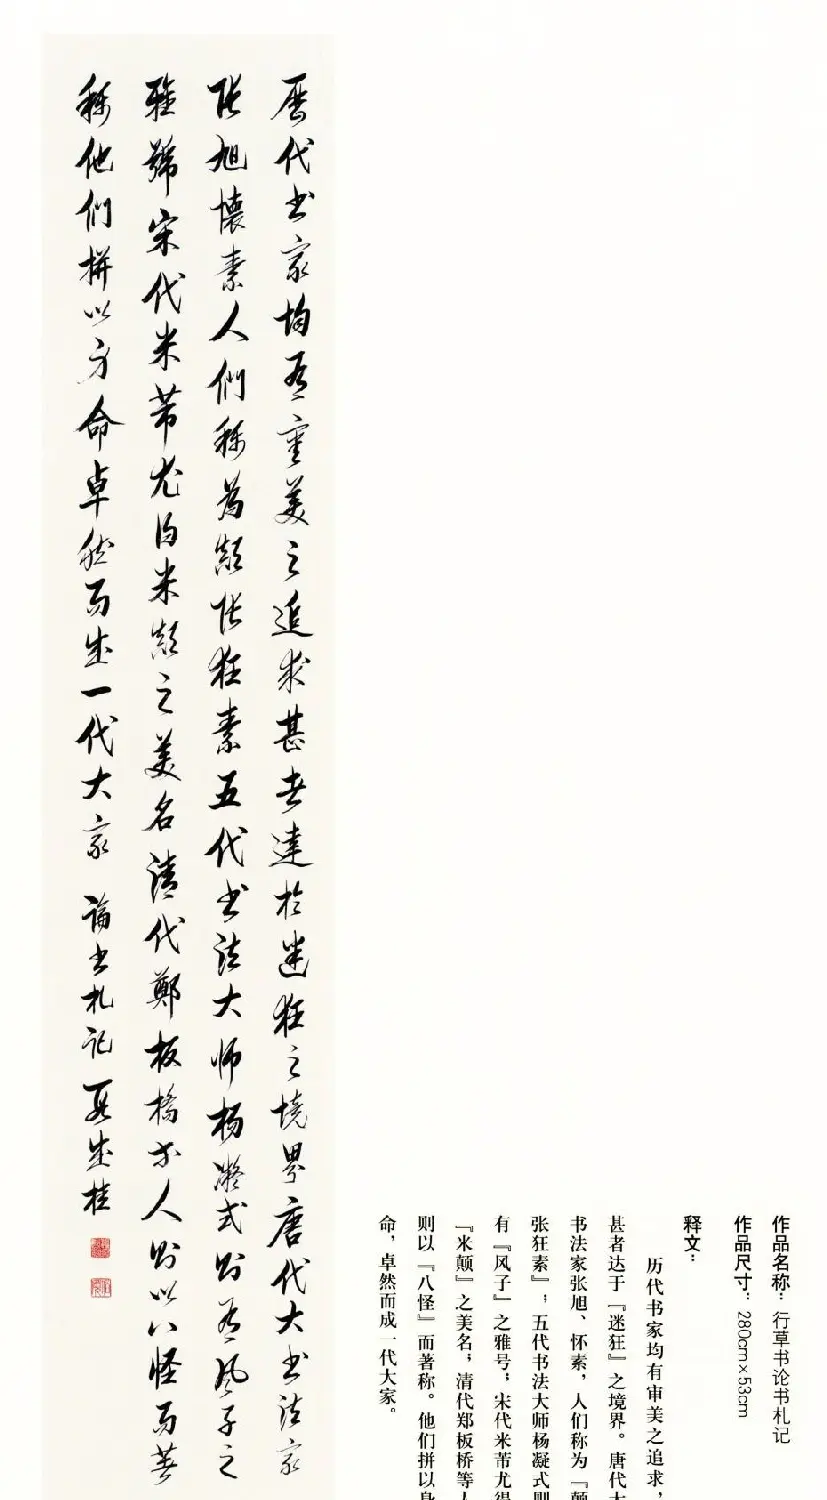 作品名称：行草书论书札记
作品尺寸：280cm×53cm
释文：
历代书家均有审美之追求，
甚者达于『迷狂』之境界。唐代大
书法家张旭、怀素，人们称为『颠
张狂素』；五代书法大师杨凝式则
有『风子』之雅号；宋代米芾尤得
『米颠』之美名；清代郑板桥等人
则以『八怪』而著称。他们拼以身
命，卓然而成一代大家。
歷代书家均有审美之追求甚者達於迷狂之境界唐代大书法家
张旭懷素人們称為颠张狂素五代书法大师杨凝式则有风子之
雅號宋代米芾尤得米颠之美名清代鄭板橋等人则以八怪而著
称他们拼以身命卓然而成一代大家 論书札记 成桂